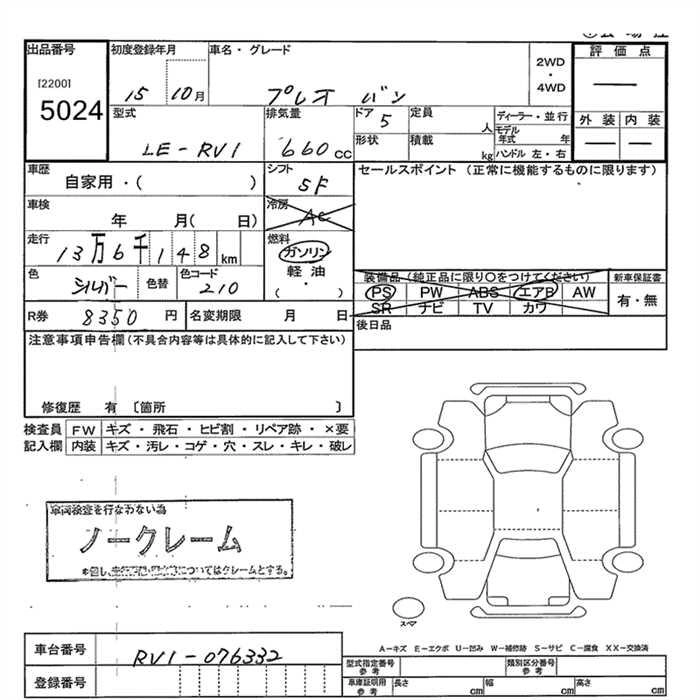 出品番号
[2200]
5024
初度登録年月
15 10月
車名・グレード
プレオ バン
2WD
・
4WD
評価点
—
外装 内装
— —
型式
LE-RV1
排気量
660cc
ドア
5
定員
人
形状
積載
kg
ディーラー・並行
モデル
年式 年
ハンドル 左・右
車歴
自家用・( )
シフト
5F
セールスポイント (正常に機能するものに限ります)
車検
年 月( 日)
冷房
AC
走行
13万6千148km
燃料
ガソリン
軽油
( ・ )
色
シルバー
色替
色コード
210
装備品(純正品に限り○をつけてください)
PS PW ABS エアB AW
SR ナビ TV カワ
新車保証書
有・無
R券 8350円
名変期限 月 日
後日品
注意事項申告欄(不具合内容等は具体的に記入して下さい)
修復歴 有 〔箇所 〕
検査員
記入欄
FW キズ・飛石・ヒビ割・リペア跡・×要
内装 キズ・汚レ・コゲ・穴・スレ・キレ・破レ
車両検査を行なわない為
ノークレーム
スペア
A－キズ E－エクボ U－凹み W－補修跡 S－サビ C－腐食 XX－交換済
車台番号
RV1-076332
登録番号
型式指定番号
参考
類別区分番号
参考
車庫証明用
参考
長さ cm
幅 cm
高さ cm